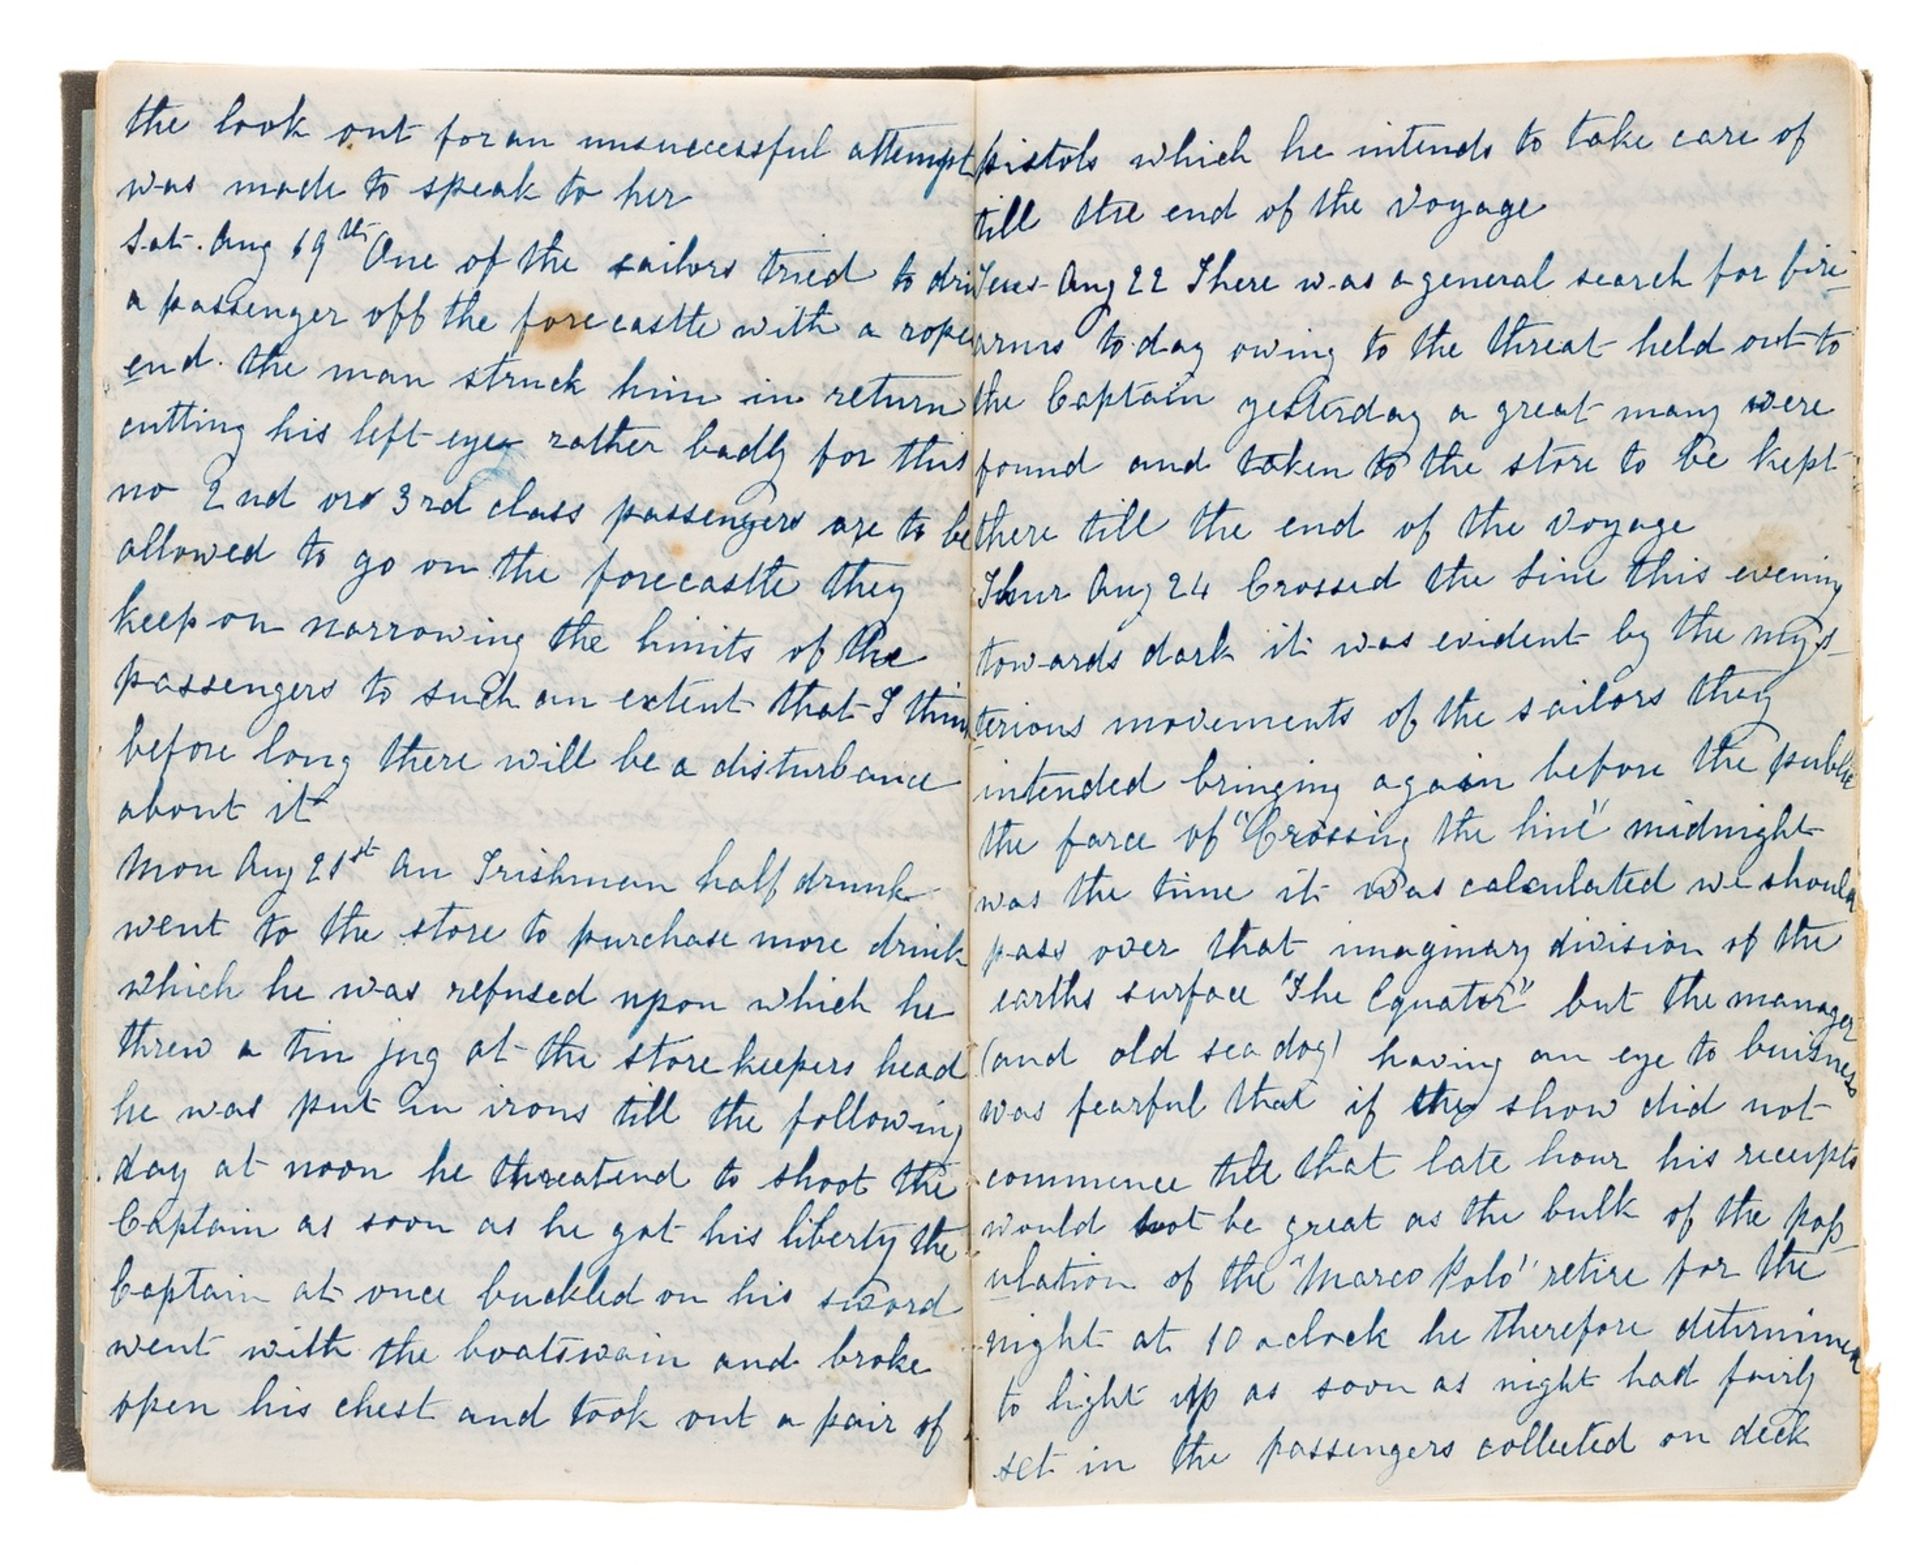 the look out for an unsuccessful attempt
was made to speak to her
Sat. Aug 19th One of the sailors tried to dri
a passenger off the forecastle with a rope
end. the man struck him in return
cutting his left eye rather badly for this
no 2nd or 3rd class passengers are to be
allowed to go on the forecastle they
keep on narrowing the limits of the
passengers to such an extent that I think
before long there will be a disturbance
about it
Mon Aug 21st An Irishman half drunk
went to the store to purchase more drink
which he was refused upon which he
threw a tin jug at the storekeepers head
he was put in irons till the following
day at noon he threatend to shoot the
Captain as soon as he got his liberty the
Captain at once buckled on his sword
went with the boatswain and broke
open his chest and took out a pair of
pistols which he intends to take care of
till the end of the voyage
Tues Aug 22 There was a general search for fire-
arms to day owing to the threat held out to
the Captain yesterday a great many were
found and taken to the store to be kept
there till the end of the voyage
Thur Aug 24 Crossed the Line this evening
towards dark it was evident by the mys-
terious movements of the sailors they
intended bringing again before the public
the farce of "Crossing the line" midnight
was the time it was calculated we should
pass over that imaginary division of the
earths surface "The Equator" but the manager
(and old sea dog) having an eye to buisness
was fearful that if the show did not
commence till that late hour his receipts
would not be great as the bulk of the pop-
ulation of the "Marco Polo" retire for the
night at 10 oclock he therefore determined
to light up as soon as night had fairly
set in the passengers collected on deck